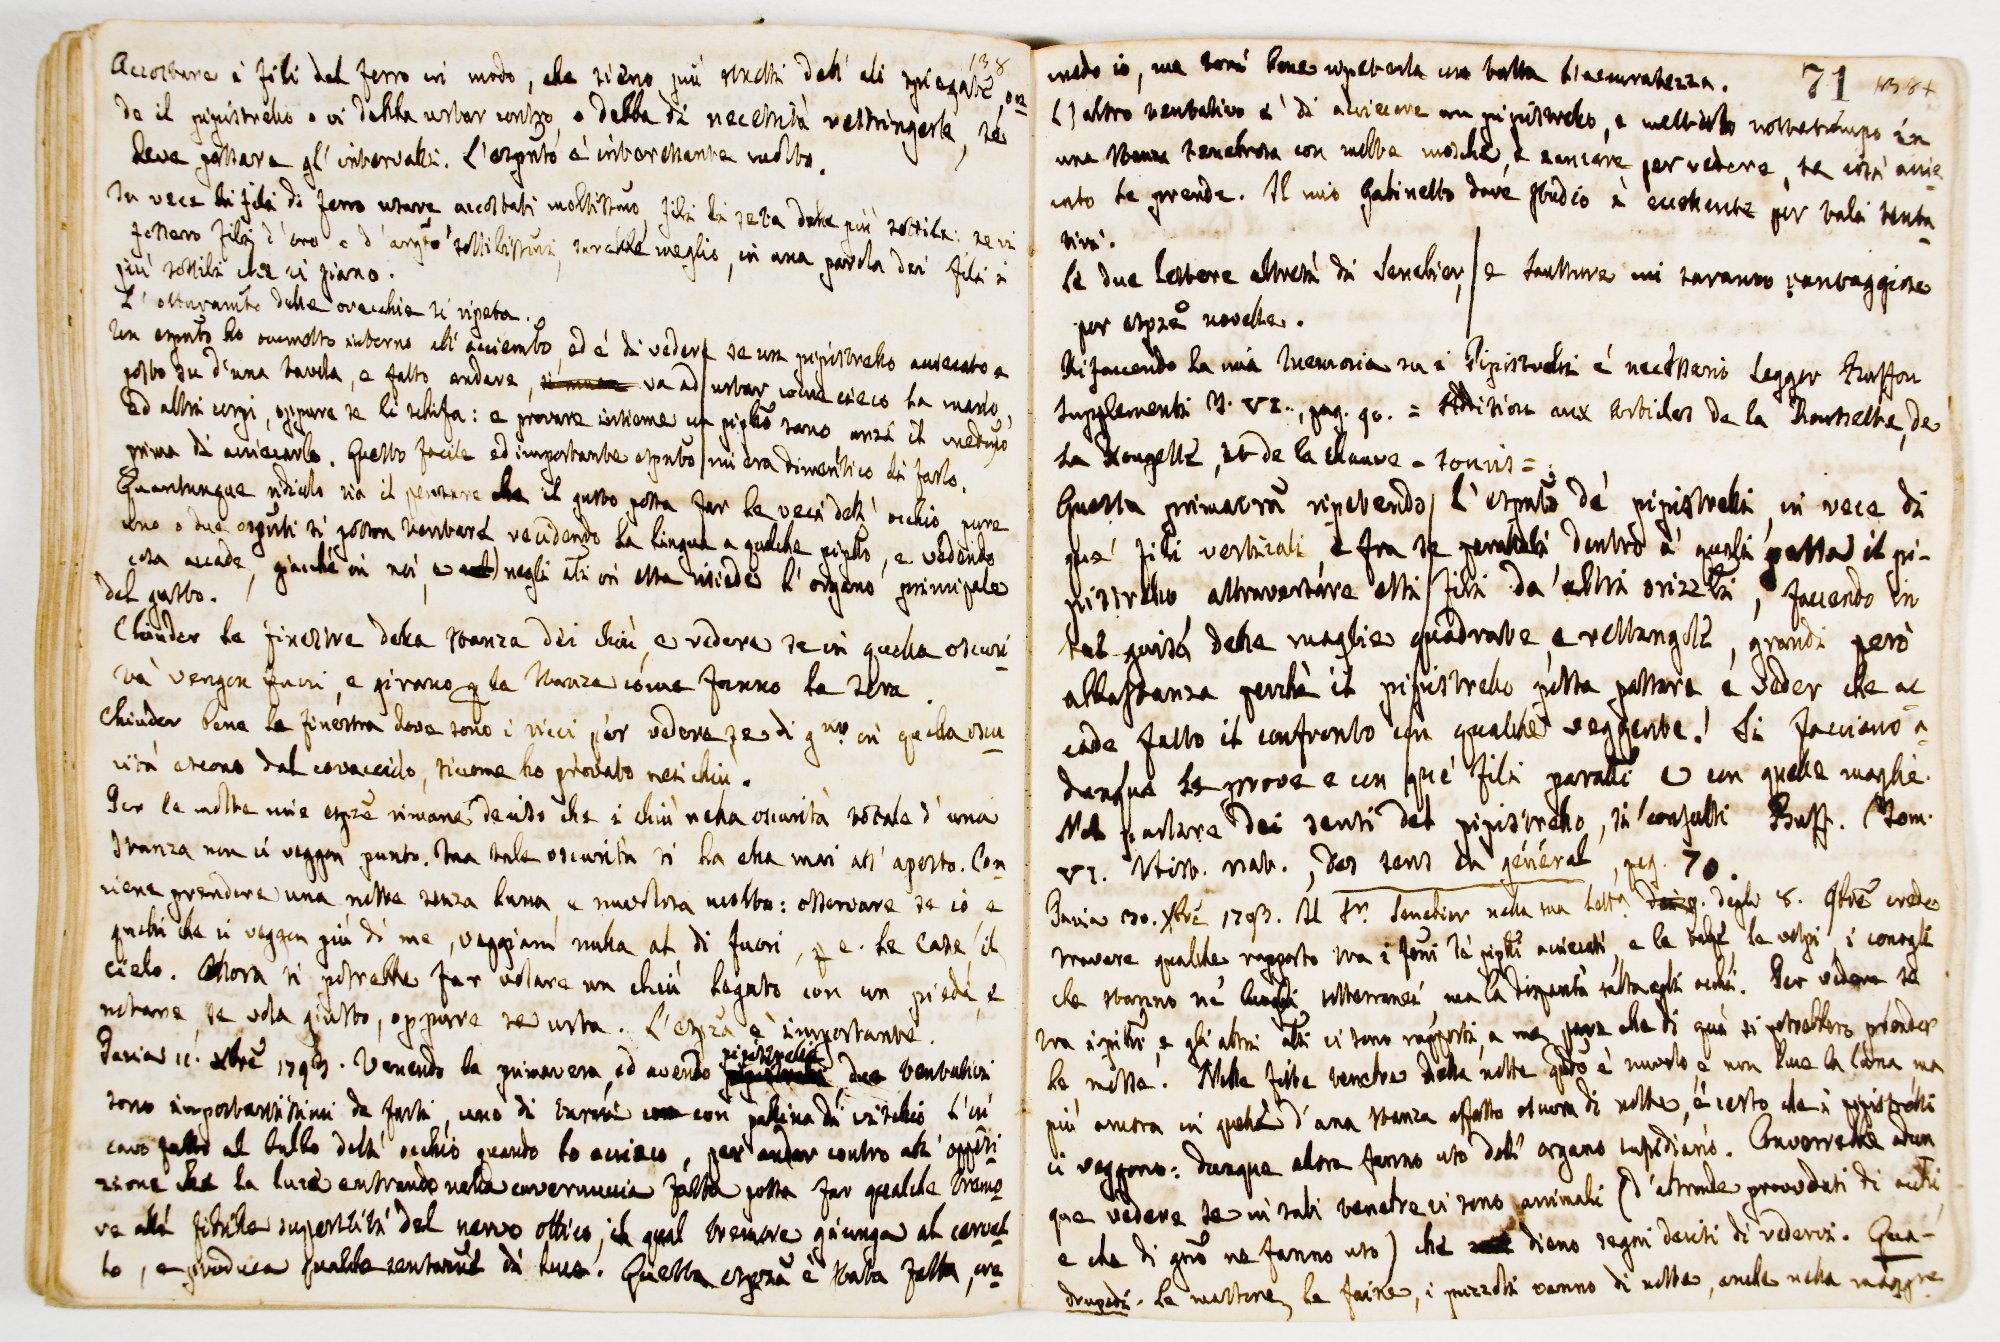 138
Accostare i fili del ferro in modo, che sieno più stretti dell' ali spiegate, on
de il pipistrello o vi debba urtar contro, o debba di necessità restringerle, se
deve passare gl' intervalli. L'esprito è interessante molto.
In vece di fili di ferro usare accostati moltissimo fili di seta delle più sottili: se vi
fossero fili d'oro e d'argto sottilissimi, sarebbe meglio, in una parola dei fili i
più sottili che ci siano.
L' otturamto delle orecchie si ripeta.
Un esprto ho ommesso intorno all' acciemto, ed è di vedere se un pipistrello acciecato e
posto su d'una tavola, e fatto andare, va ad urtar come cieco la mano,
ed altri corpi, oppure se li schifa: e provare insieme un piplo sano, anzi il medmo
prima di acciecarlo. Questo facile ed importante esprto mi era dimentico di farlo.
Quantunque ridicolo sia il pensare che il gusto possa far le veci dell' occhio, pure
uno o due esprti si posson tentare recidendo la lingua a qualche piplo, e vedendo
cosa accade, giacchè in noi, e negli ali in essa risiede l' organo principale
del gusto.
Chiuder le finestre della stanza dei chiù, e vedere se in quella oscuri
tà vengon fuori, e girano p la stanza come fanno la sera.
Chiuder bene la finestra dove sono i ricci per vedere se di gno in quella oscu
rità escono dal covacciolo, siccome ho provato nei chiù.
Per le molte mie espze rimane deciso che i chiù nella oscurità totale d' una
stanza non ci veggon punto. Ma tale oscurità si ha ella mai all' aperto. Con
viene prendere una notte senza luna, e nuvolosa molto: osservare se io e
quelli che ci veggon più di me, veggiam nulla al di fuori, p e. le case, il
cielo. Allora si potrebbe far volare un chiù legato con un piede, e
notare, se vola giusto, oppure se urta. L'espza è importante.
Pavia 11. Xbre 1793. Venendo la primavera, ed avendo pipistrelli due tentativi
sono importantissimi da farsi, uno di turare con panina di vischio l'in
cavo fatto al bulbo dell' occhio quando lo accieco, per andar contro all' opposi
zione che la luce entrando nella cavernuccia fatta possa far qualche tremo
re alli fibrille superstiti del nervo ottico, il qual tremore giunga al cervel
lo, e produca qualche sentore di luce. Questa espza è stata fatta, cre
71
credo io, ma sarà bene ripeterla con tutta l'accuratezza.
L' altro tentativo è di acciecare un pipistrello, e metterlo nottetempo in
una stanza tenebrosa con molte mosche, e zanzare per vedere, se così accie
cato le prende. Il mio Gabinetto dove studio è eccellente per tali tenta
tivi.
Le due lettere altresì di Senebier, e Saussure mi saranno vantaggiose
per espze novelle.
Rifacendo la mia Memoria su i Pipistrelli è necessario legger Buffon
Supplementi T. VI., pag. 90. = Addition aux articles de la Roussette, de
la Rougette, et de la Chauve-souris =.
Questa primavera ripetendo l' esprto de' pipistrelli, in vece di
que' fili verticali e fra se paralelli dentro a' quali passa il pi-
pistrello attraversare essi fili da altri orizzli, facendo in
tal guisa delle maglie quadrate, e rettangole, grandi però
abbastanza perchè il pipistrello possa passare, e veder che ac
cade fatto il confronto con qualche veggente. Si facciano a
dunque le prove e con que' fili paralli e con quelle maglie.
Nel parlare dei sensi del pipistrello, si consulti Buff. (Tom.
VI. Hist. nat., des sens en général, pag. 70.
Pavia 30. Xbre 1793. Il Sr. Senebier nella sua letta degli 8. Xbre crede
trovare qualche rapporto tra i feni de' piplli acciecati, e le talpe, le volpi, i conigli
che stanno ne' luoghi sotterranei ma la disparità salta agli occhi. Per vedere se
tra i piplli, e gli altri ali ci sono rapporti, a me pare che di qui si potrebbero prender
le mosse. Nelle folte tenebre della notte qdo è nuvolo, e non luce la luna ma
più ancora in quelle d'una stanza affatto oscura di notte, è certo che i pipistrelli
ci veggono: dunque allora fanno uso dell' organo Converrebbe adun
que vedere se in tali tenebre ci sono animali (d' altronde provveduti di occhi,
e che di gno ne fanno uso) che dieno segni decisi di vederci. Qua-
drupedi. Le martore, le faine, i puzzoli vanno di notte, anche nella maggre